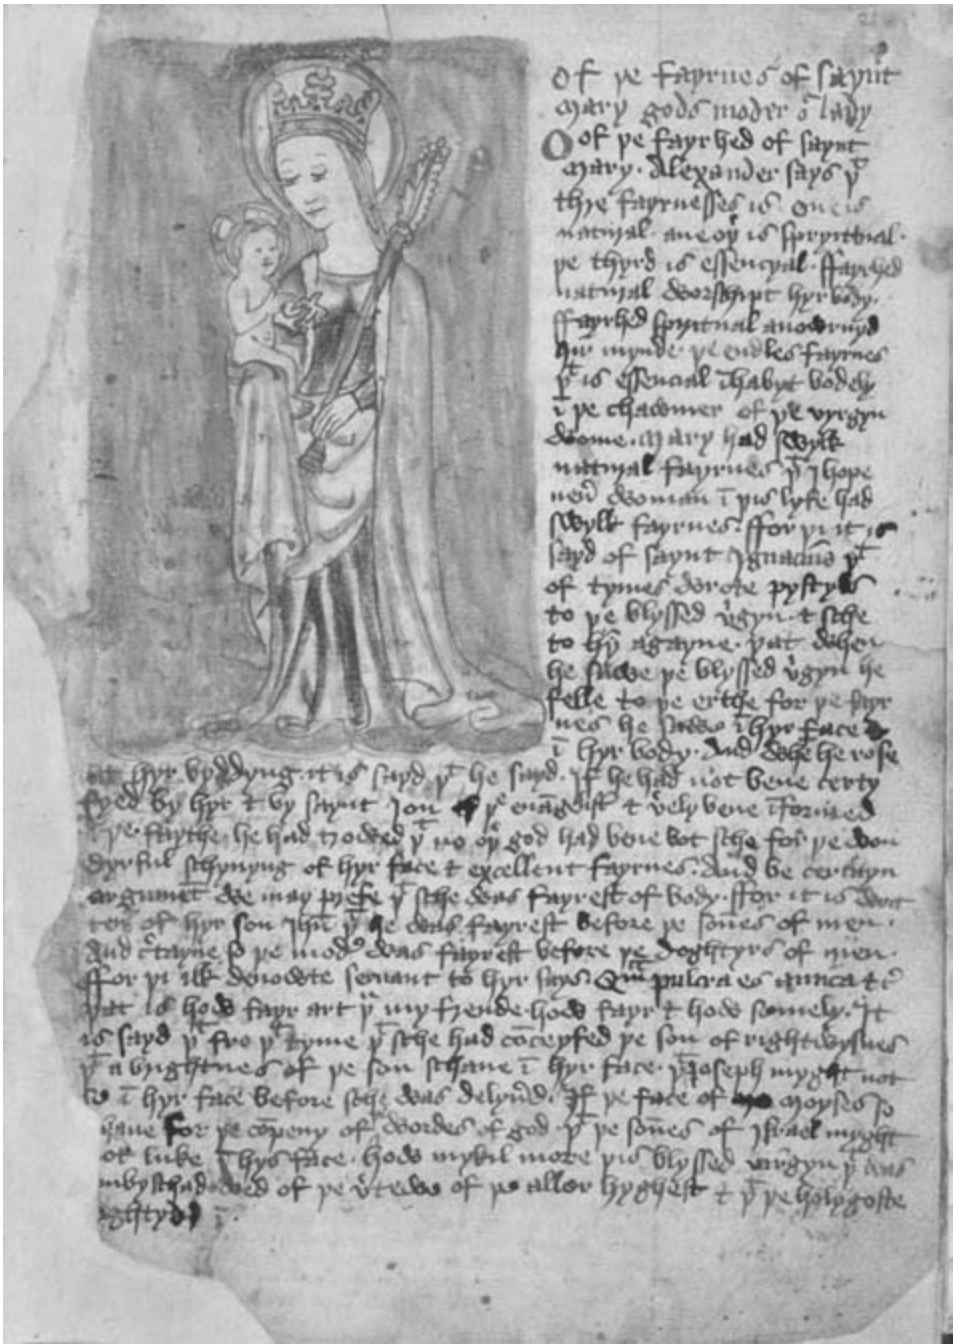 21
Of þe fayrnes of saynt
Mary gods moder oʳ lady
Of þe fayrhed of saynt
Mary. Alexander says þᵗ
thre fayrnesses is. One is
natural. ane oþʳ is spryitual.
þe thyrd is essencyal. ffayrhed
natural worschipt hyr body.
ffayrhed spyritual anowrnyd
hir mynde. þe endles fayrnes
þᵗ is essencial īhabyt bodely
ī þe chawmer of þe vyrgyn
wome. Mary had swylk
natural fayrnes þᵗ I hope
neuʳ woman ī þis lyfe had
swylk fayrnes. ffor þi it is
sayd of saynt Ignacius þᵗ
of tymes wrote pystyls
to þe blyssed vʳgyn & sche
to hȳ agayne. þat when
he sawe þe blyssed vʳgyn he
felle to þe erthe for þe fayr
nes he sawe ī hyr face &
ī hyr body. And whē he rose
at hyr byddyng. it is sayd þᵗ he sayd. If he had not bene certy
fyed by hyr & by saynt Ion þe euāgelist & vʳely bene īformed
ī þe faythe. he had trowed þᵗ no oþʳ god had bene bot sche for þe won
dyrful schynyng of hyr face & excellent fayrnes. And be certayn
argument we may prefe þᵗ sche was fayrest of body. ffor it is writ
ten of hyr son Ihū þᵗ he was fayrest before þe sones of men.
And cʳtayne so þe modʳ was fayrest before þe doghtyrs of men.
ffor þi ilk denowte seruant to hyr says. Qᵐ pulcra es amica & cʳ
þat is how fayr art þᵘ my frende. how fayr & how semely. It
is sayd þᵗ fro þᵗ tyme þᵗ sche had cōceyfed þe son of rightwysnes
þᵗ a bryghtnes of þe son schane ī hyr face. þᵗ Ioseph myght not
ī hyr face before sche was delyuʳd. If þe face of Moyses so
schane for þe cōpeny of wordes of god. þᵗ þe sones of Israel myght
not luke ī hys face. how mykil more þis blyssed virgyn þᵗ was
vmbyschadowed of þe vʳtewe of þe allor hyghest & þᵗ þe holy goste
lightyd ī.